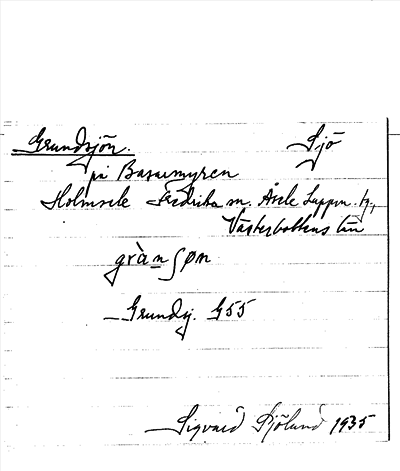 Grundsjön. Sjö
på Basumyren
Holmsele Fredrika sn. Åsele Lappm. tg.,
Västerbottens län
grà̱n ʃøn
Grundsj. G55
Sigvard Sjölund 1935